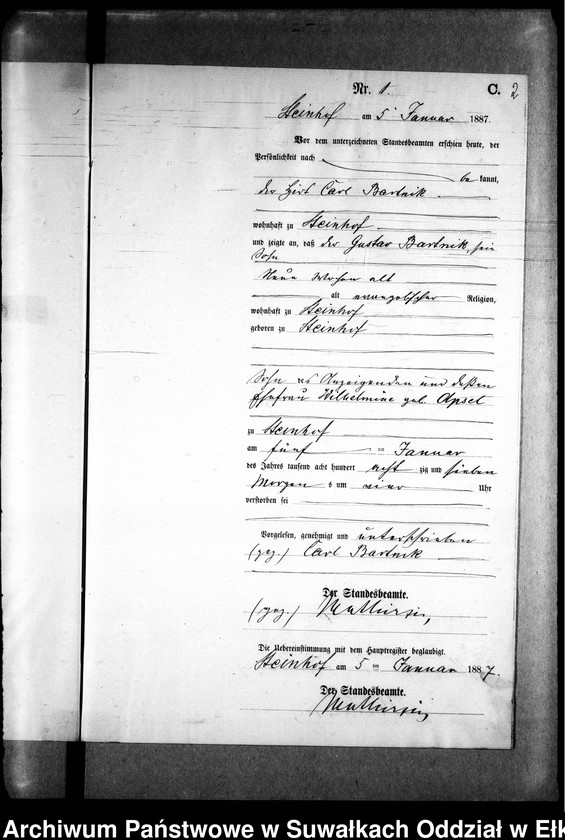 Nr. 1. C. 2
Steinhof am 5 Januar 1887.
Vor dem unterzeichneten Standesbeamten erschien heute, der
Persönlichkeit nach
be kannt,
der Hirt Carl Bartnik
wohnhaft zu Steinhof
und zeigte an, daß der Gustav Bartnik, sein
Sohn
Neun Wochen alt
alt evangelischer Religion,
wohnhaft zu Steinhof
geboren zu Steinhof
Sohn es Anzeigenden und deßen
Ehefrau Wilhelmine geb. Opset
zu Steinhof
am fünf ten Januar
des Jahres tausend acht hundert acht zig und sieben
Morgen s um vier Uhr
verstorben sei
Vorgelesen, genehmigt und unterschrieben
(gez.) Carl Bartnik
Der Standesbeamte.
(gez.)
Die Uebereinstimmung mit dem Hauptregister beglaubigt.
Steinhof am 5 ten Januar 1887.
Der Standesbeamte.
Archiwum Państwowe w Suwałkach Oddział w Ełk